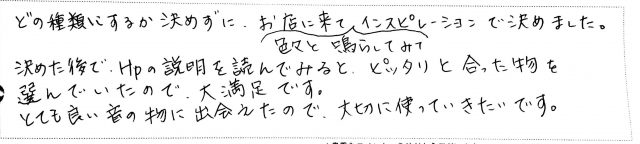 どの種類にするか決めずに、お店に来てインスピレーションで決めました。
色々と鳴らしてみて
決めた後で、Hpの説明を読んでみると、ピッタリと合った物を
選んでいたので、大満足です。
とても良い音の物に出会えたので、大切に使っていきたいです。